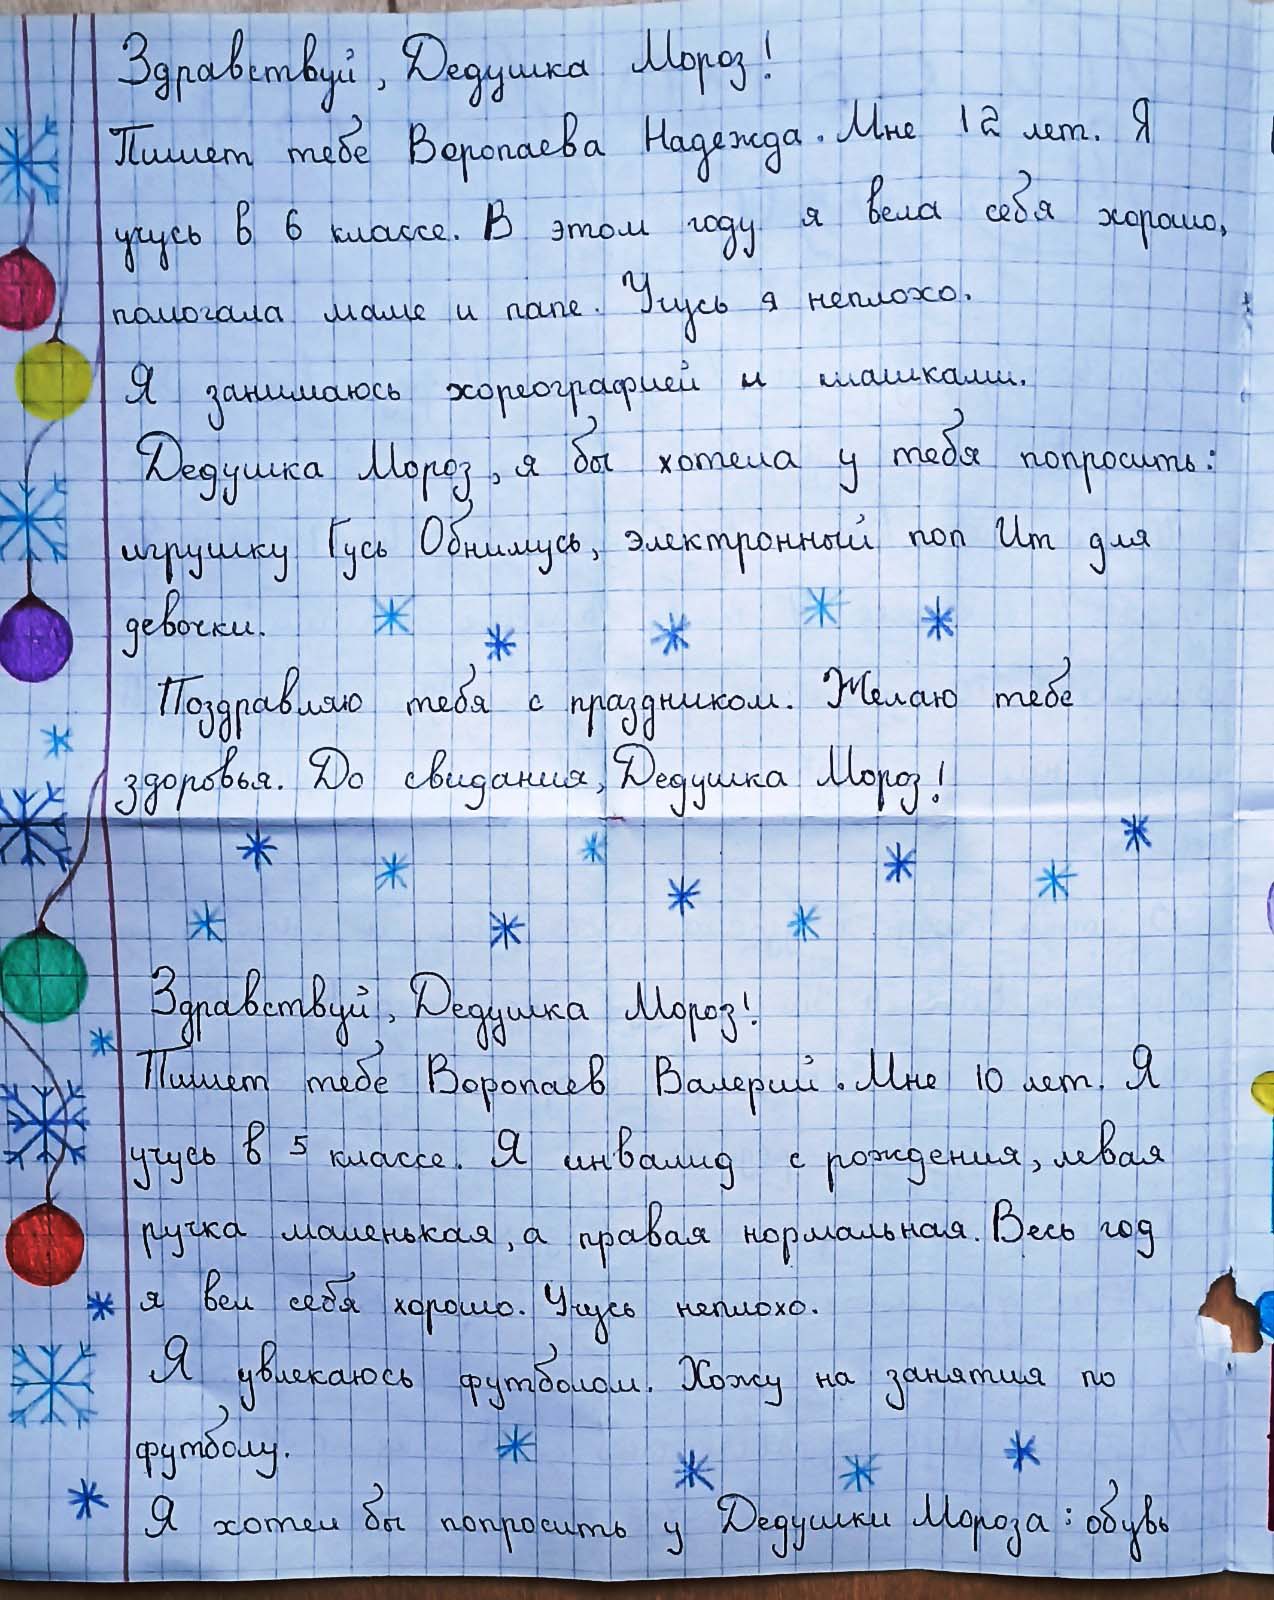 Здравствуй, Дедушка Мороз!
Пишет тебе Воропаева Надежда. Мне 12 лет. Я
учусь в 6 классе. В этом году я вела себя хорошо,
помогала маме и папе. Учусь я неплохо.
Я занимаюсь хореографией и шашками.
Дедушка Мороз, я бы хотела у тебя попросить:
игрушку Гусь Обнимусь, электронный поп Ит для
девочки.
Поздравляю тебя с праздником. Желаю тебе
здоровья. До свидания, Дедушка Мороз!
Здравствуй, Дедушка Мороз!
Пишет тебе Воропаев Валерий. Мне 10 лет. Я
учусь в 5 классе. Я инвалид с рождения, левая
ручка маленькая, а правая нормальная. Весь год
я вел себя хорошо. Учусь неплохо.
Я увлекаюсь футболом. Хожу на занятия по
футболу.
Я хотел бы попросить у Дедушки Мороза: обувь